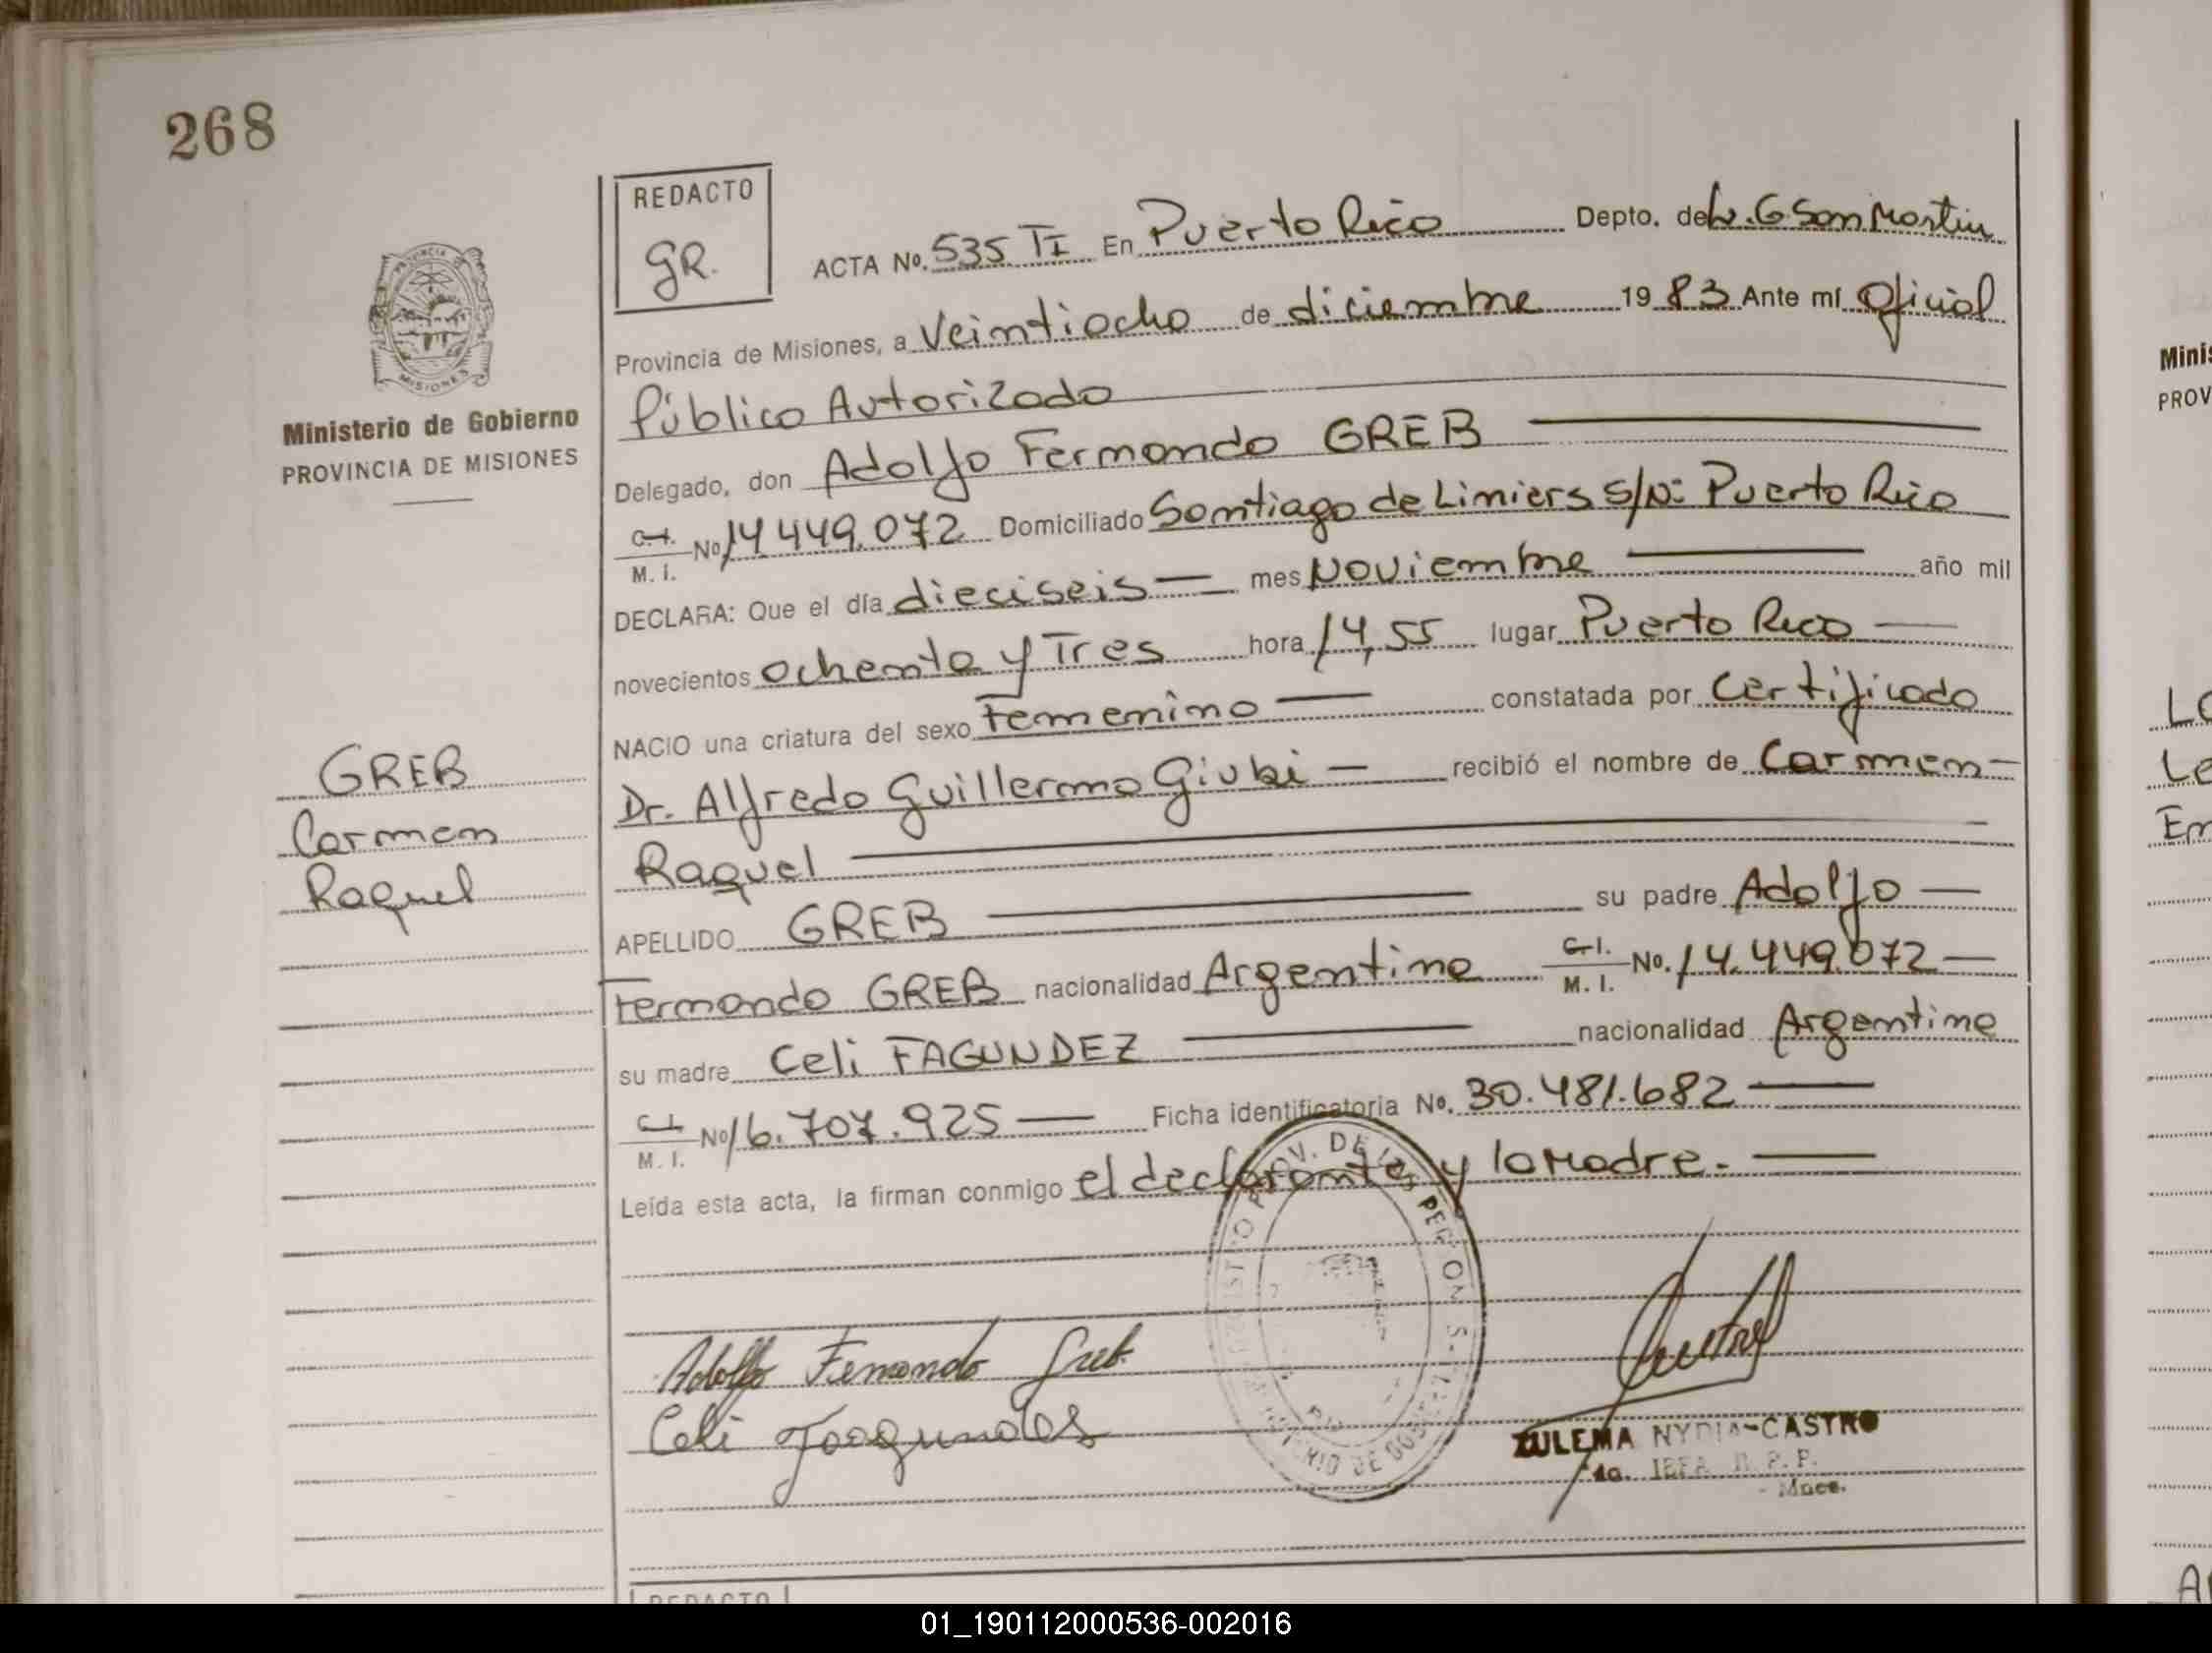 268
REDACTO
GR.
ACTA No. 535 TI En Puerto Rico Depto. de L. G San Martin
Provincia de Misiones, a Veintiocho de diciembre 19 83 Ante mí Oficial
Público Autorizado
Delegado, don Adolfo Fernando GREB
C.I. M. I. No 14 449.072 Domiciliado Santiago de Liniers S/Nº Puerto Rico
DECLARA: Que el día dieciseis mes Noviembre año mil
novecientos ochenta y Tres hora 14,55 lugar Puerto Rico
NACIO una criatura del sexo Femenino constatada por Certificado
Dr. Alfredo Guillermo Giubi recibió el nombre de Carmen
Raquel
APELLIDO GREB su padre Adolfo
Fernando GREB nacionalidad Argentina C.I. M. I. No. 14.449.072
su madre Celi FAGUNDEZ nacionalidad Argentina
C.I. M. I. No 16.707.925 Ficha identificatoria No. 30.481.682
Leída esta acta, la firman conmigo el declarante y la Madre.
Adolfo Fernando Greb
Celi Faagundes
ZULEMA NYDIA CASTRO
PROVINCIA DE
MISIONES
Ministerio de Gobierno
PROVINCIA DE MISIONES
GREB
Carmen
Raquel
REDACTO
Minis
PROV
01_190112000536-002016